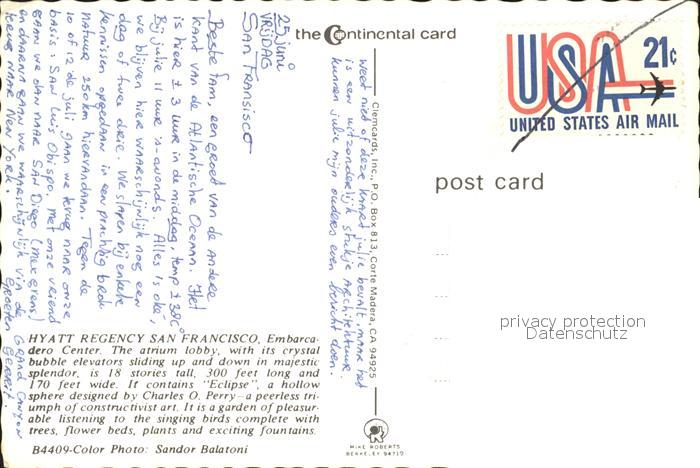 the Continental card
21¢
USA
UNITED STATES AIR MAIL
post card
25 juni
VRIJDAG
SAN FRANSISCO
Beste fam, een groet van de andere
kant van de Atlantische Oceaan. Het
is hier ± 3 uur in de middag, temp ± 38C°
Bij jullie 11 uur 's-avonds. Alles is oké,
we blijven hier waarschijnlijk nog een
dag of twee drie. We slapen bij enkele
kennissen opgedaan in een prachtig brok
natuur 250km hiervandaan. Tegen de
10 of 12 de juli gaan we terug naar onze
basis: San Luis Obispo. Met onze vriend
gaan we dan naar SAN Diego (Mex grens)
en daarna gaan we waarschijnlijk via de GRAND CANYON
terug naar New York. Groeten Gerrit.
Weet niet of deze kaart jullie bevalt, maar het
is een uitzonderlijk stukje Architektuur.
kunnen jullie mijn ouders even bericht doen.
Clemcards, Inc., P.O. Box 813, Corte Madera, CA 94925
HYATT REGENCY SAN FRANCISCO, Embarca-
dero Center. The atrium lobby, with its crystal
bubble elevators sliding up and down in majestic
splendor, is 18 stories tall, 300 feet long and
170 feet wide. It contains "Eclipse", a hollow
sphere designed by Charles O. Perry—a peerless tri-
umph of constructivist art. It is a garden of pleasur-
able listening to the singing birds complete with
trees, flower beds, plants and exciting fountains.
B4409-Color Photo: Sandor Balatoni
MIKE ROBERTS
BERKELEY 94710
privacy protection
Datenschutz